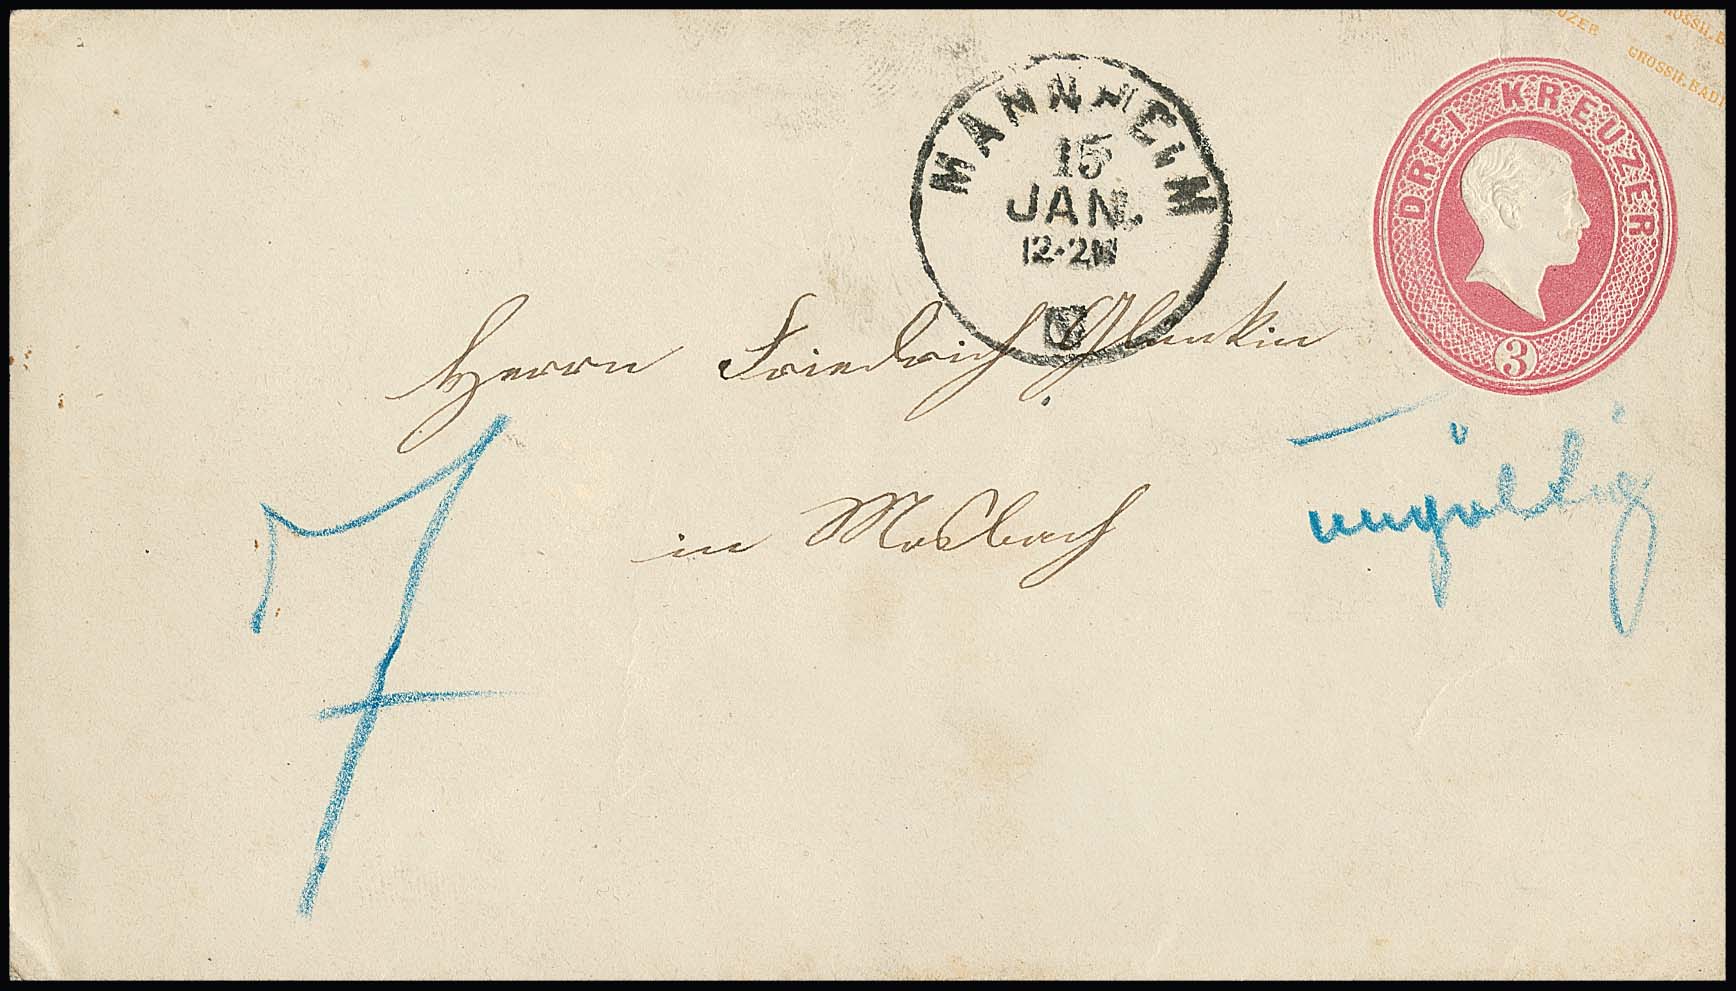 UZER GROSSH. B
GROSSH. BAD
DREI KREUZER
3
MANNHEIM
15
JAN.
12-2N
Herrn Friedrich
in Mosbach
ungültig
7